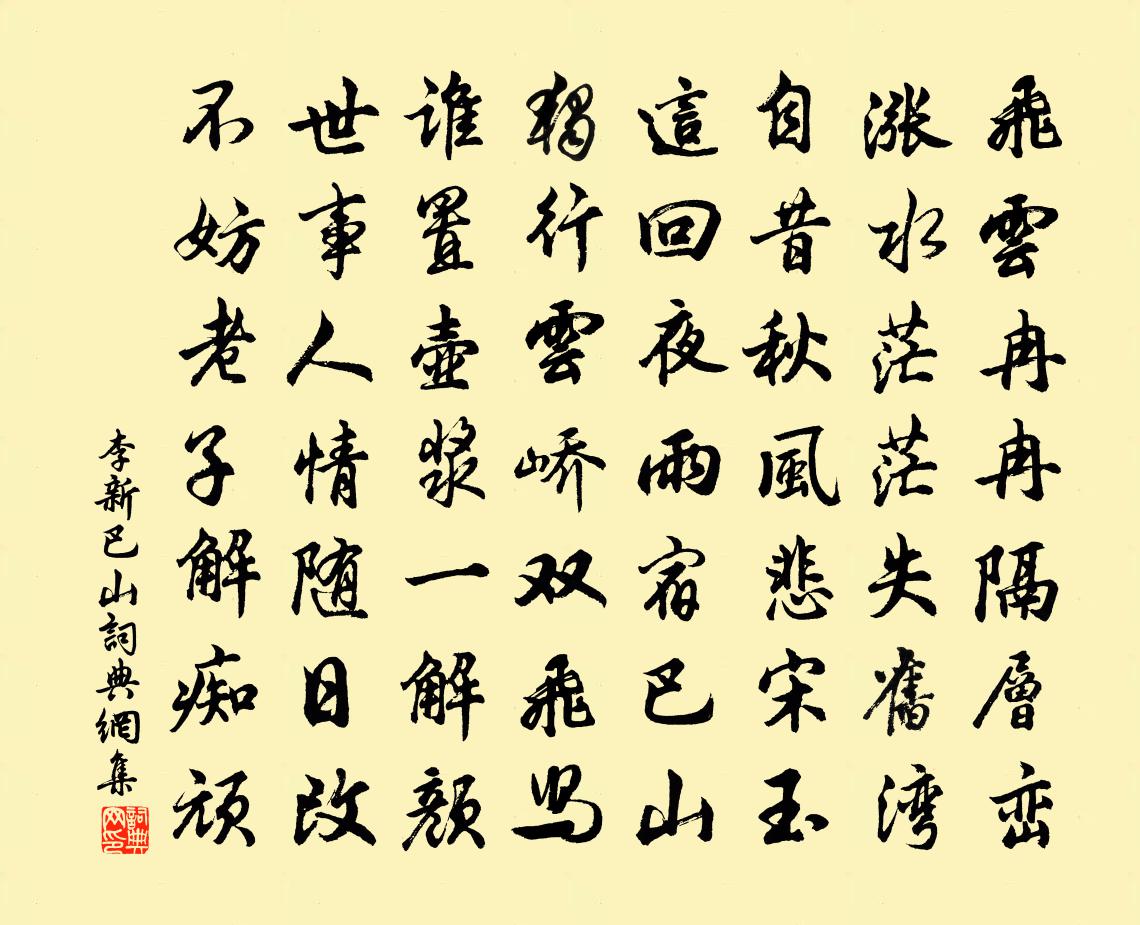 飛雲冉冉隔層峦
漲水茫茫失舊湾
自昔秋風悲宋玉
這回夜雨宿巴山
獨行雲峤双飛舄
谁置壺漿一解顏
世事人情随日改
不妨老子解痴頑
李新巴山詞典網集
詞典網印